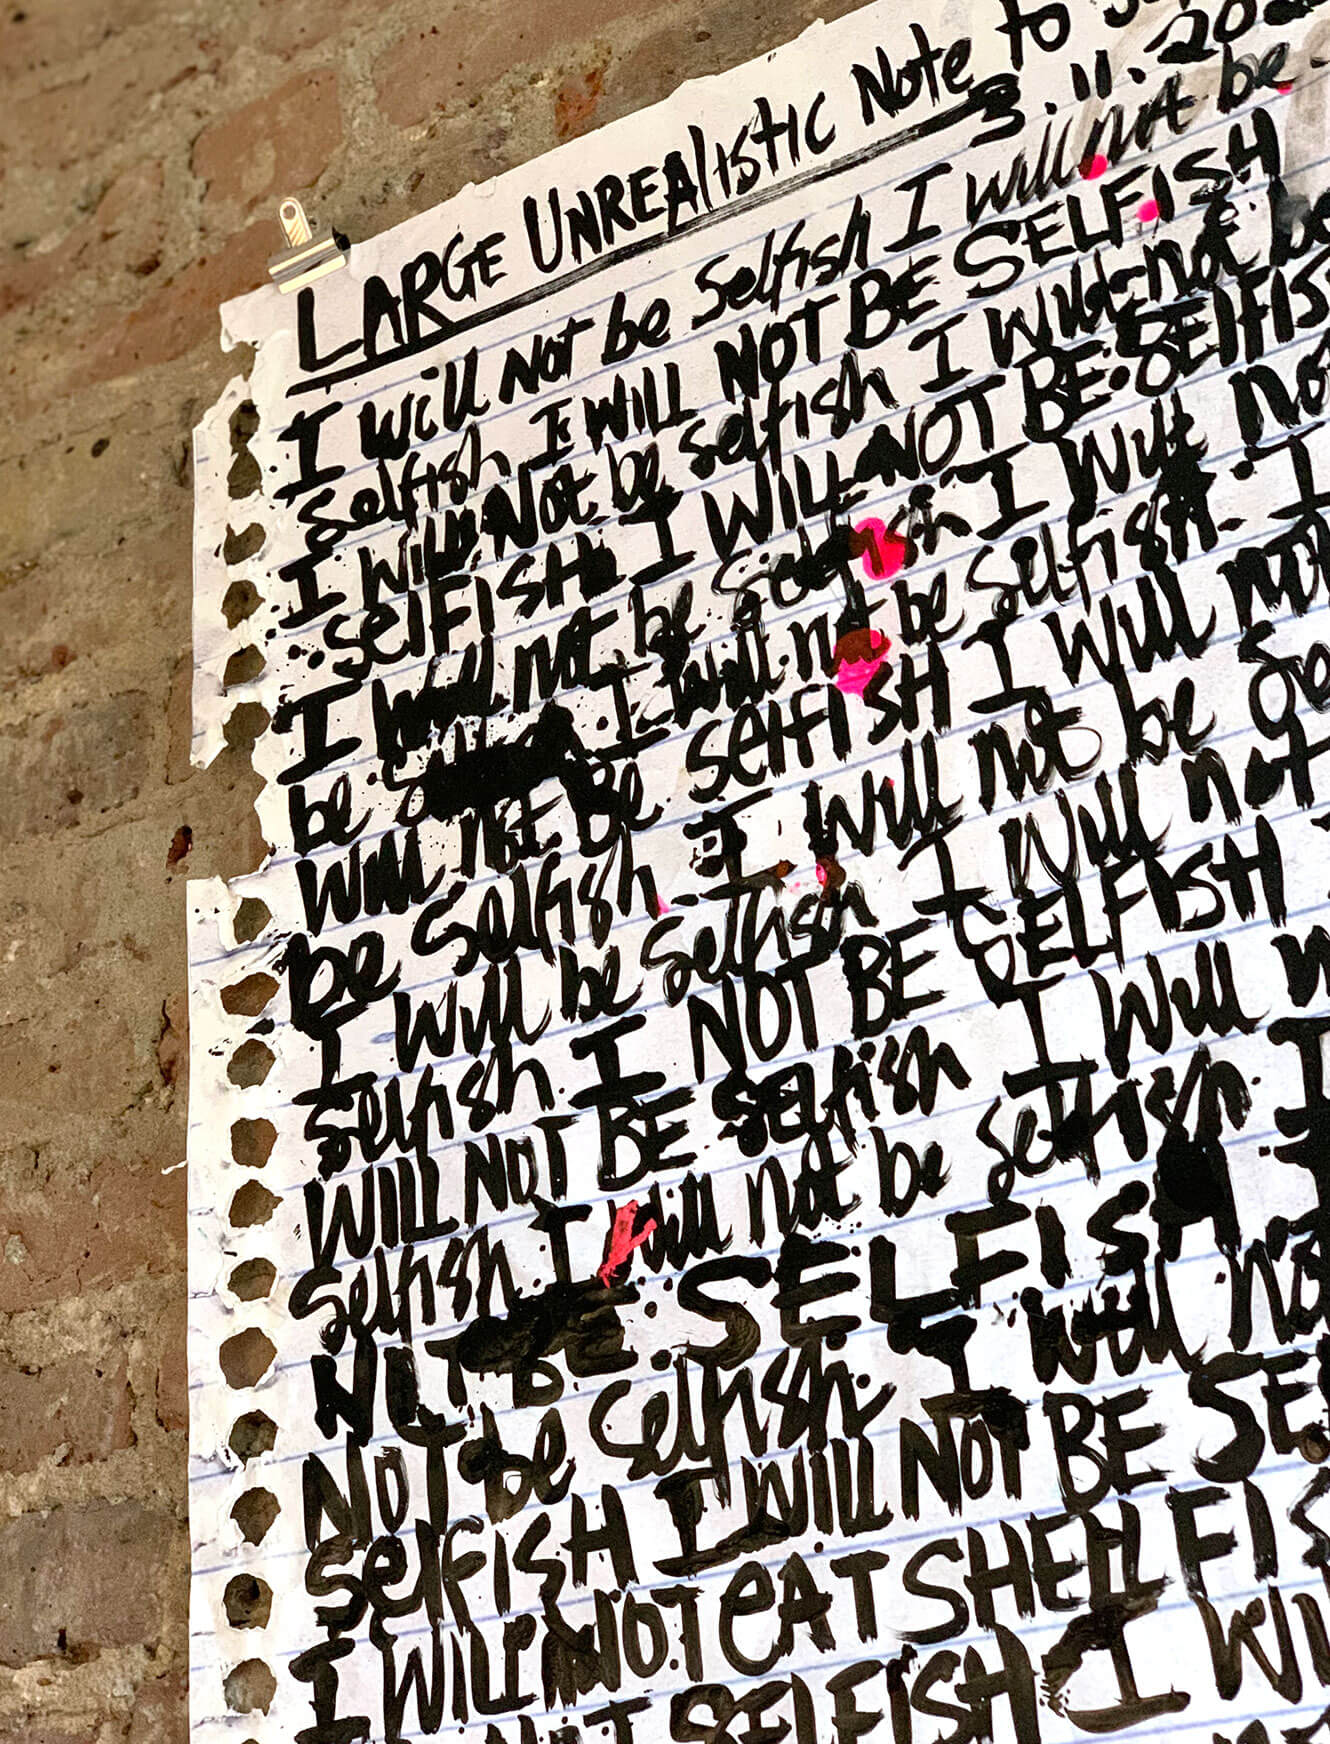 LARGE UNREAlistic Note to
3.11.202
I will not be selfish I will not be
selfish I WILL NOT BE SELFISH
I will Not be selfish I will not be
selFISH I WILL NOT BE SELFIS
I will not be selfish I will no
be I will not be selfish. I
will not BE selfish I will not
be selfish. I will not be se
I will be selfish I will not
selfish I NOT BE SELFISH
WILL NOT BE SElfish I will n
selfish I will not be selfish I
NOT BE SELFISH
NOT be selfish. I will no
selFISH I WILL NOT BE SE
I WILL NOT eAT SHELLFIS
NOT SELFISH I WI